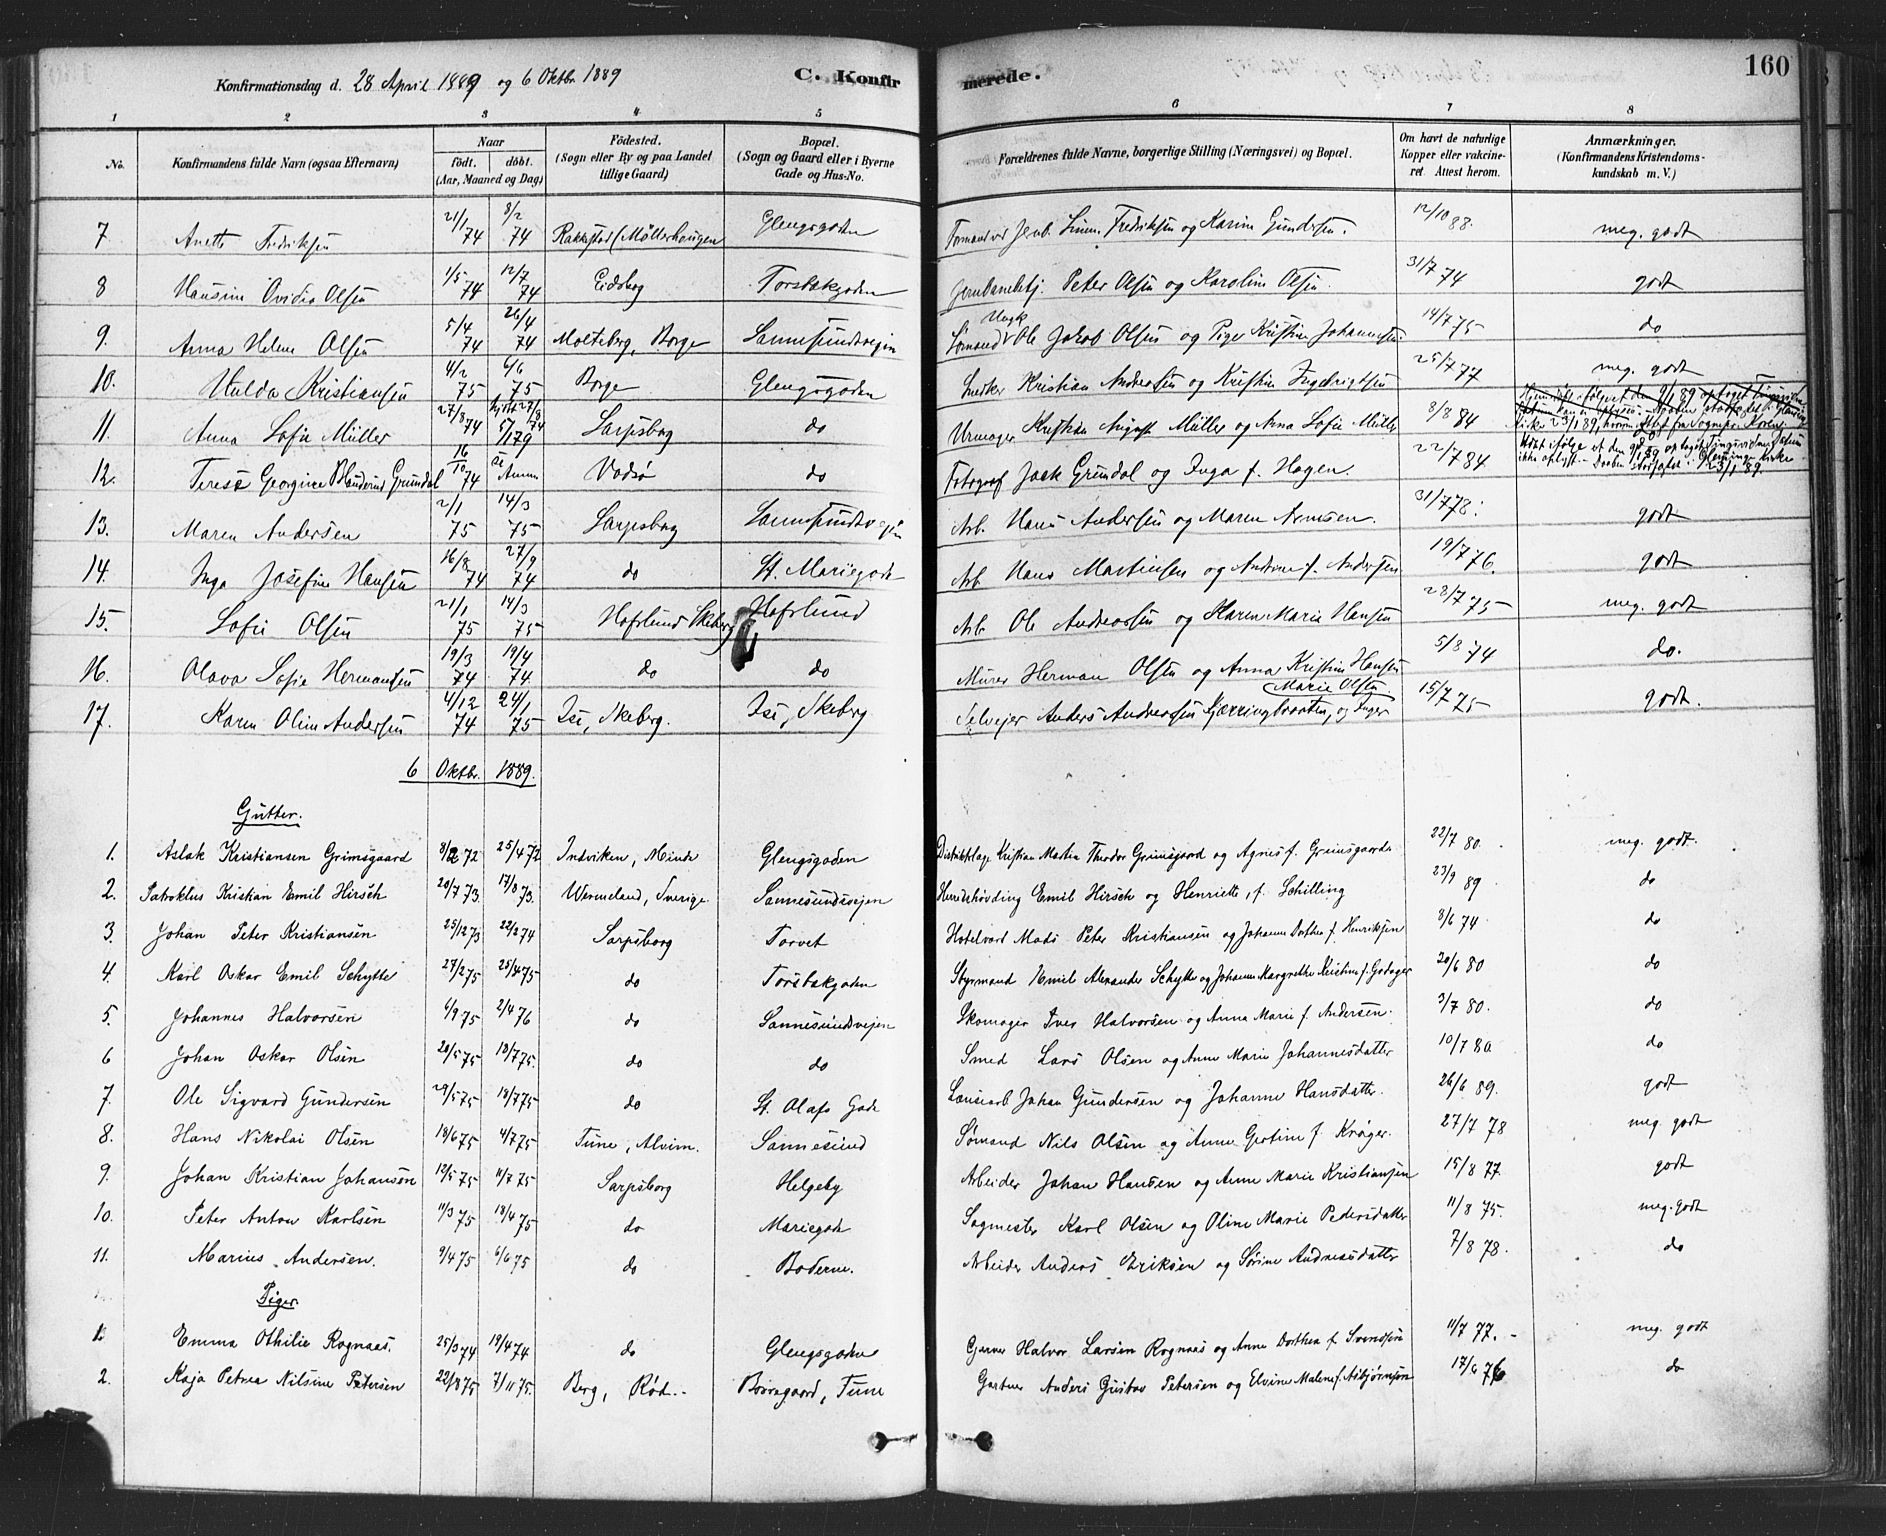 160
Konfirmationsdag d. 28 April 1889 og 6 Oktbr 1889 C. Konfirmerede.
1 2 3 4 5 6 7 8
No. Konfirmandens fulde Navn (ogsaa Efternavn) Naar født. døbt. (Aar, Maaned og Dag) Födested. (Sogn eller By og paa Landet tillige Gaard) Bopæl. (Sogn og Gaard eller i Byerne Gade og Hus-No. Forældrenes fulde Navne, borgerlige Stilling (Næringsvei) og Bopæl. Om havt de naturlige Kopper eller vakcineret. Attest herom. Anmærkninger. (Konfirmandens Kristendomskundskab m. V.)
7 Anette Fredriksen 21/1 74 8/2 74 Rakkestad Glengsgaden Fredriksen og Karine Gundersen. 12/10 88. meg. godt
8 Hansine Ovidia Olsen 1/5 74 12/7 74 Eidsberg Torsbækgaden Jernbanebetj. Peter Olsen og Karoline Olsen. 31/7 74 godt
9. Anna Helene Olsen 5/4 74 26/4 74 Molteberg, Borge Sannesundsvejen Sömand Ungk Ole Jakob Olsen og Pige Kristine Johannessen. 14/7 75 do
10. Hulda Kristiansen 4/2 75 6/6 75 Borge Glengsgaden Snedker Kristian Andersen og Kristine Ingebrigtsen 25/7 77 meg. godt
11. Anna Sofie Müller 27/8 74 Sarpsborg do Urmager Kristian August Müller og Anna Sofie Müller 8/8 84
12. Terese Georgine Grundal 16/10 74 Vadsø do Fotograf Jack Grundal og Inga f. Hagen. 22/7 84
13. Maren Andersen 2/1 75 14/3 75 Sarpsborg Sannesundsvejen Arb. Hans Andersen og Maren Arnesen. 31/7 78. godt
14. Inga Josefine Hansen 16/8 74 27/9 74 do St. Mariegade Arb. Hans Martinsen og Andrine f. Andersen 19/7 76. godt
15. Sofie Olsen 21/1 75 14/3 75 Hafslund Skeberg Hafslund Arb. Ole Andreassen og Karen Marie Hansen 28/7 75 meg. godt
16. Olava Sofie Hermansen 19/3 74 19/4 74. do do Murer Herman Olsen og Anna Kristine Hansen 5/8 74 do.
17. Karen Oline Andersen 4/12 74 24/1 75 Isi, Skeberg. Isi, Skeberg Selvejer Anders Andersen Kjærringbraaten, og Inger Marie Olsen 15/7 75 godt.
6 Oktbr. 1889.
Gutter.
1. Aslak Kristiansen Grimsgaard 8/2 72 25/4 72 Indviken, Minde Glengsgaden Distriktslæge Kristian Martin Theodor Grimsgaard og Agnes f. Grimsgaard 22/7 80. meg. godt.
2. Patroklus Kristian Emil Hirsch 20/7 73. 17/8 73. Wermeland, Sverige. Sannesundsvejen Herredshövding Emil Hirsch og Henriette, f. Schilling 23/9 89 do
3. Johan Peter Kristiansen 25/12 73 22/2 74 Sarpsborg Torvet Hotelvært Mads Peter Kristiansen og Johanne Dorthea f. Henriksen 8/6 74 do
4. Karl Oskar Emil Schytte 27/2 75 25/4 75 do Torsbækgaden Styrmand Emil Alexander Schytte og Johanne Margrethe Kristine f. Godager 20/6 80 do
5. Johannes Halvorsen 6/9 75 2/4 76 do Sannesundsvejen Skomager Iver Halvorsen og Anna Marie f. Andersen. 3/7 80. do
6 Johan Oskar Olsen 20/5 75 18/7 75. do do Smed Lars Olsen og Anne Marie Johannesdatter 10/7 80. do
7. Ole Sigvard Gundersen 29/5 75 18/7 75 do St. Olafs Gade Johan Gundersen og Johanne Hansdatter. 26/6 89. godt
8. Hans Nikolai Olsen 18/6 75 4/7 75 Tune, Alvim. Sannesund Sömand Nils Olsen og Anne Gertine f. Kröger. 27/7 78 meg. godt
9. Johan Kristian Johansen 12/5 75 11/7 75 Sarpsborg Helgeby Arbeider Johan Hansen og Anne Marie Kristiansen 15/8 77. godt
10. Peter Anton Karlsen 11/3 75 18/4 75 do Mariegade Sagmester Karl Olsen og Oline Marie Pedersdatter 11/8 75. meg. godt
11. Marius Andersen. 9/4 75 6/6 75 do Boderne. Arbeider Anders Eriksen og Sörine Andreasdatter 7/8 78. do
Piger.
1. Emma Othilie Rognaas. 25/3 74 19/4 74 do Glengsgaden Halvor Larsen Rognaas og Anne Dorthea f. Svendsen 11/7 77. meg. godt
2. Kaja Petrea Nilsine Petersen 22/8 75 7/11 75. Berg, Röd. Tune Gartner Anders Gustav Petersen og Elvine Malene f. Asbjörnsen 17/6 76 do